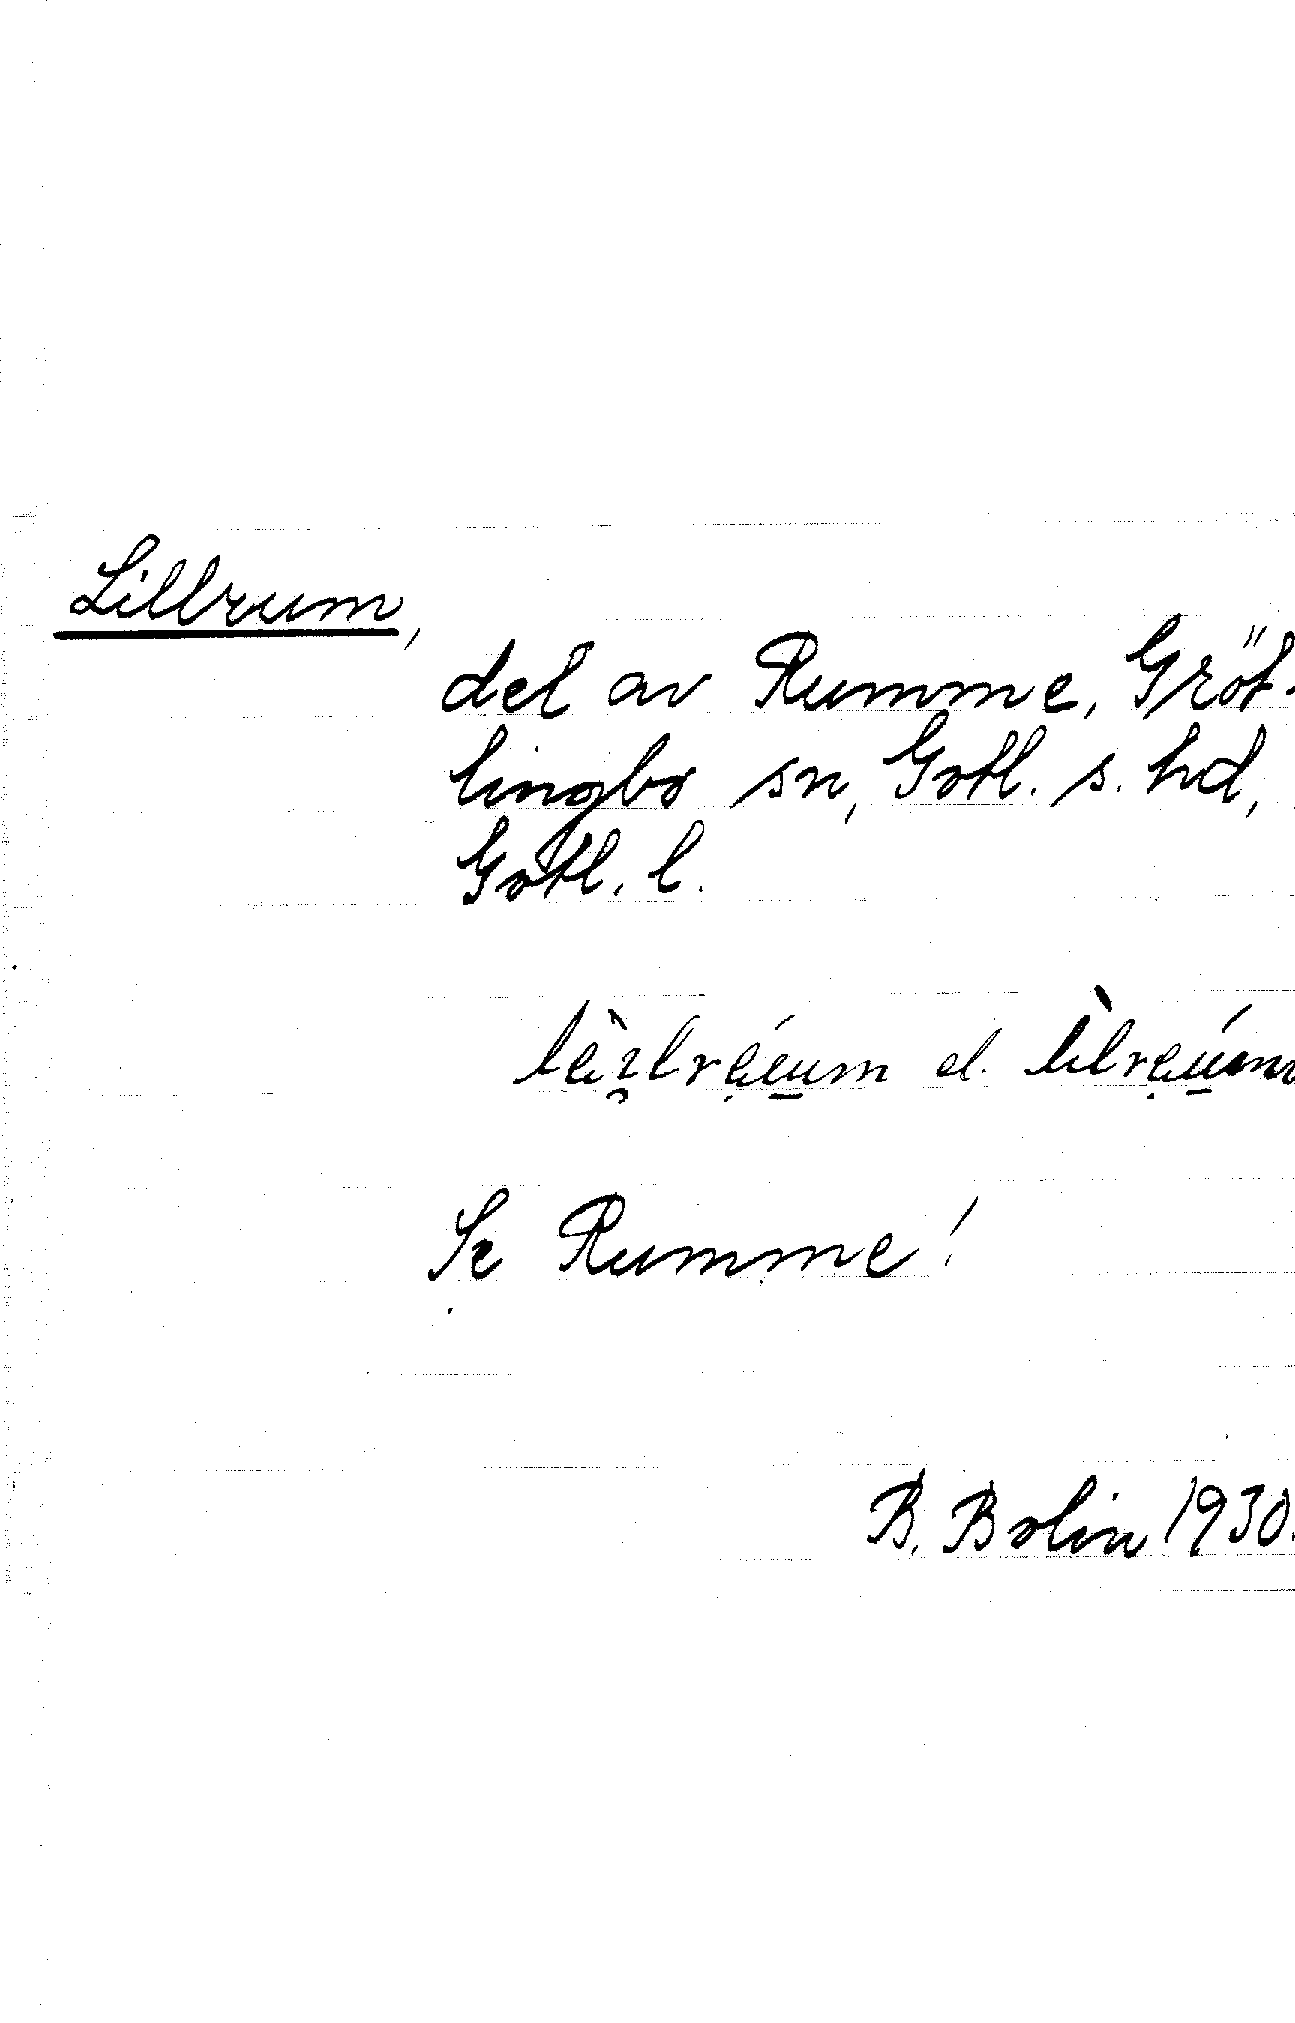 Lillrum,
del av Rumme, Gröt-
lingbo sn, Gotl. s. hd,
Gotl. l.
el.
Se Rumme!
B. Bolin 1930.